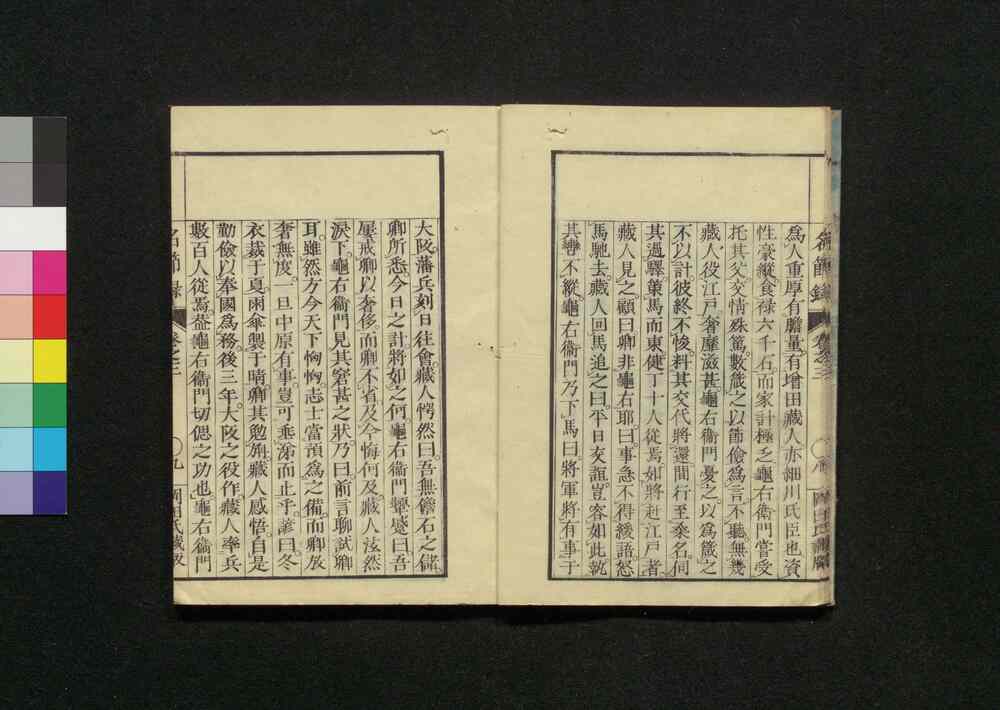 名節録 卷之三 ○八 岡田氏藏版
爲人重厚有膽量。有增田藏人亦細川氏臣也資
性豪縱食祿六千石。而家計極乏龜右衞門嘗受
托其父交情殊篤。數箴之以節儉爲言不聽。無幾
藏人役江戸奢靡滋甚龜右衞門憂之以爲箴之
不以計彼終不悛。料其交代將還間行至桑名伺
其過驛策馬而東健丁十人從焉如將赴江戸者
藏人見之顧曰卿非龜右耶。曰事急不得緩語怒
馬馳去。藏人回馬追之曰平日交誼豈容如此執
其轡不縱。龜右衞門乃下馬曰將軍將有事于
大阪。藩兵刻日往會。藏人愕然曰。吾無儋石之儲
卿所悉。今日之計將如之何。龜右衞門顰蹙曰吾
屢戒卿以奢侈而卿不省。及今悔何及。藏人泫然
淚下。龜右衞門見其窘甚之狀乃曰。前言聊試卿
耳。雖然方今天下恟恟志士當預爲之備。而卿放
奢無度。一旦中原有事。豈可垂涕而止乎。諺曰。冬
衣裁于夏。雨傘製于晴。卿其勉旃。藏人感悟。自是
勤儉以奉國爲務後三年。大阪之役作。藏人率兵
數百人從焉。蓋龜右衞門切偲之功也。龜右衞門
名節録 卷之三 ○九 岡田氏藏版